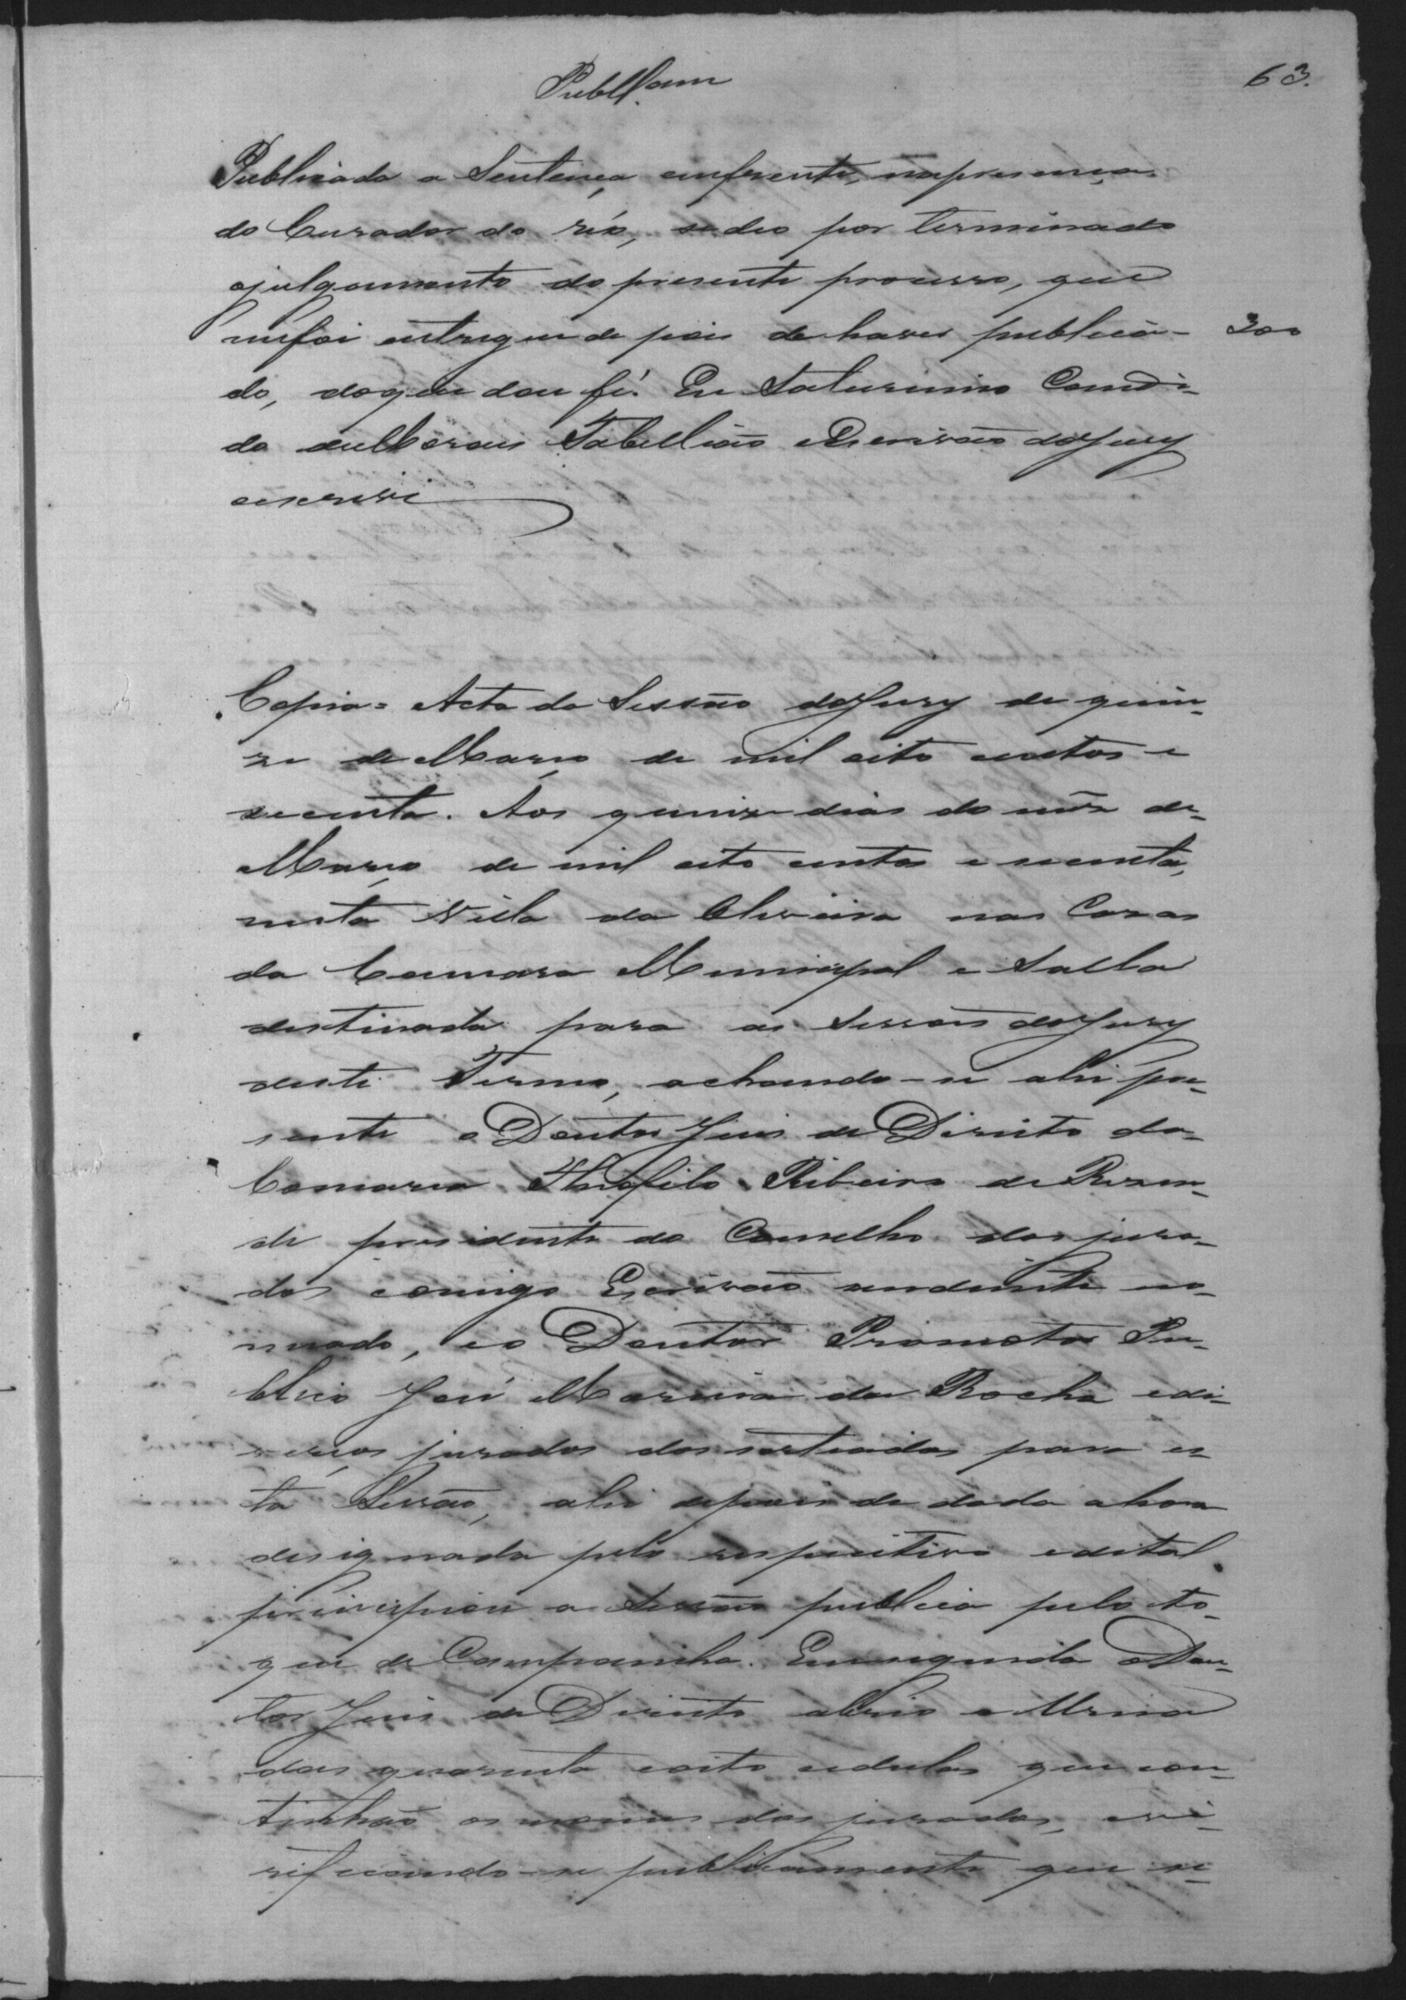 Publ.çam
63.
Publicada a Sentença emfrente, napresença
do Curador do réo, sedeo por terminado
ojulgamento do presente processo, que
mefoi entregue depois de haver publica-
300
do, doque dou fé. Eu Saturnino Candi-
do de Moraes Tabellião eEscrivão do Jury
oescrevi
Copia = Acta da Sessão do Jury de quin-
ze de Março de mil oito centos e
secenta. Aos quinze dias do mez de
Março de mil oito centos e secenta,
nesta Villa da Oliveira nas Cazas
da Camara Municipal e Salla
destinada para as Sessões do Jury
deste Termo, achando-se ahi pre-
sente o Doutor Juis de Direito da
Comarca Theofilo Ribeiro de Rezen-
de presidente do Conselho dos jura-
dos comigo Escrivão aodiante no-
meado, eo Doutor Promotor Pu-
blico José da Rocha edi-
versos jurados dos sorteados para es-
ta Sessão, ahi depois de dada ahora
designada pelo respectivo edital
principiou a Sessão publica pelo to-
que de Campainha. Emseguida oDou-
tor Juis de Direito abrio a Urna
das quarenta eoito cedulas que con-
tinhão os nomes dos jurados, eve-
rificando-se publicamente que se